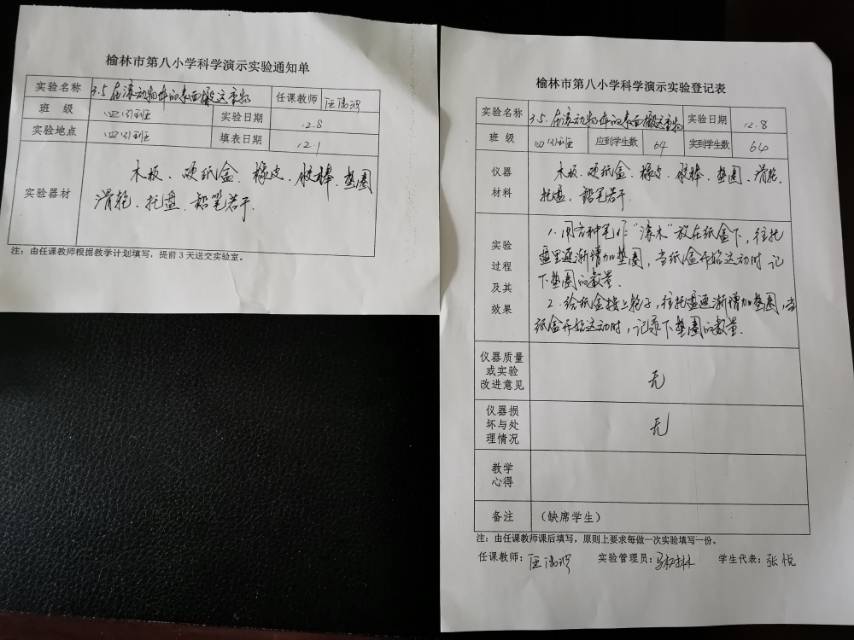 榆林市第八小学科学演示实验通知单
实验名称 3.5 在滚动物体的表面搬运重物 任课教师
班 级 四(4)班 实验日期 12.8
实验地点 四(4)班 填表日期 12.1
实验器材 木板、硬纸盒、橡皮、胶棒、垫圈
滑轮、托盘、铅笔若干.
注：由任课教师根据教学计划填写，提前 3 天送交实验室。
榆林市第八小学科学演示实验登记表
实验名称 3.5 在滚动物体的表面搬运重物 实验日期 12.8
班 级 四(4)班 应到学生数 64 实到学生数 64
仪器 木板、硬纸盒、橡皮、胶棒、垫圈、滑轮、
材料 托盘、铅笔若干
实验 1. 用各种笔作“滚木”放在纸盒下，往托
过程 盘里逐渐增加垫圈，当纸盒开始运动时记
及其 下垫圈的数量.
效果 2. 给纸盒接上轮子，往托盘逐渐增加垫圈，当
纸盒开始运动时，记录下垫圈的数量.
仪器质量
或实验 无
改进意见
仪器损
坏与处 无
理情况
教学
心得
备注 （缺席学生）
注：由任课教师课后填写，原则上要求每做一次实验填写一份。
任课教师： 实验管理员： 学生代表：张悦